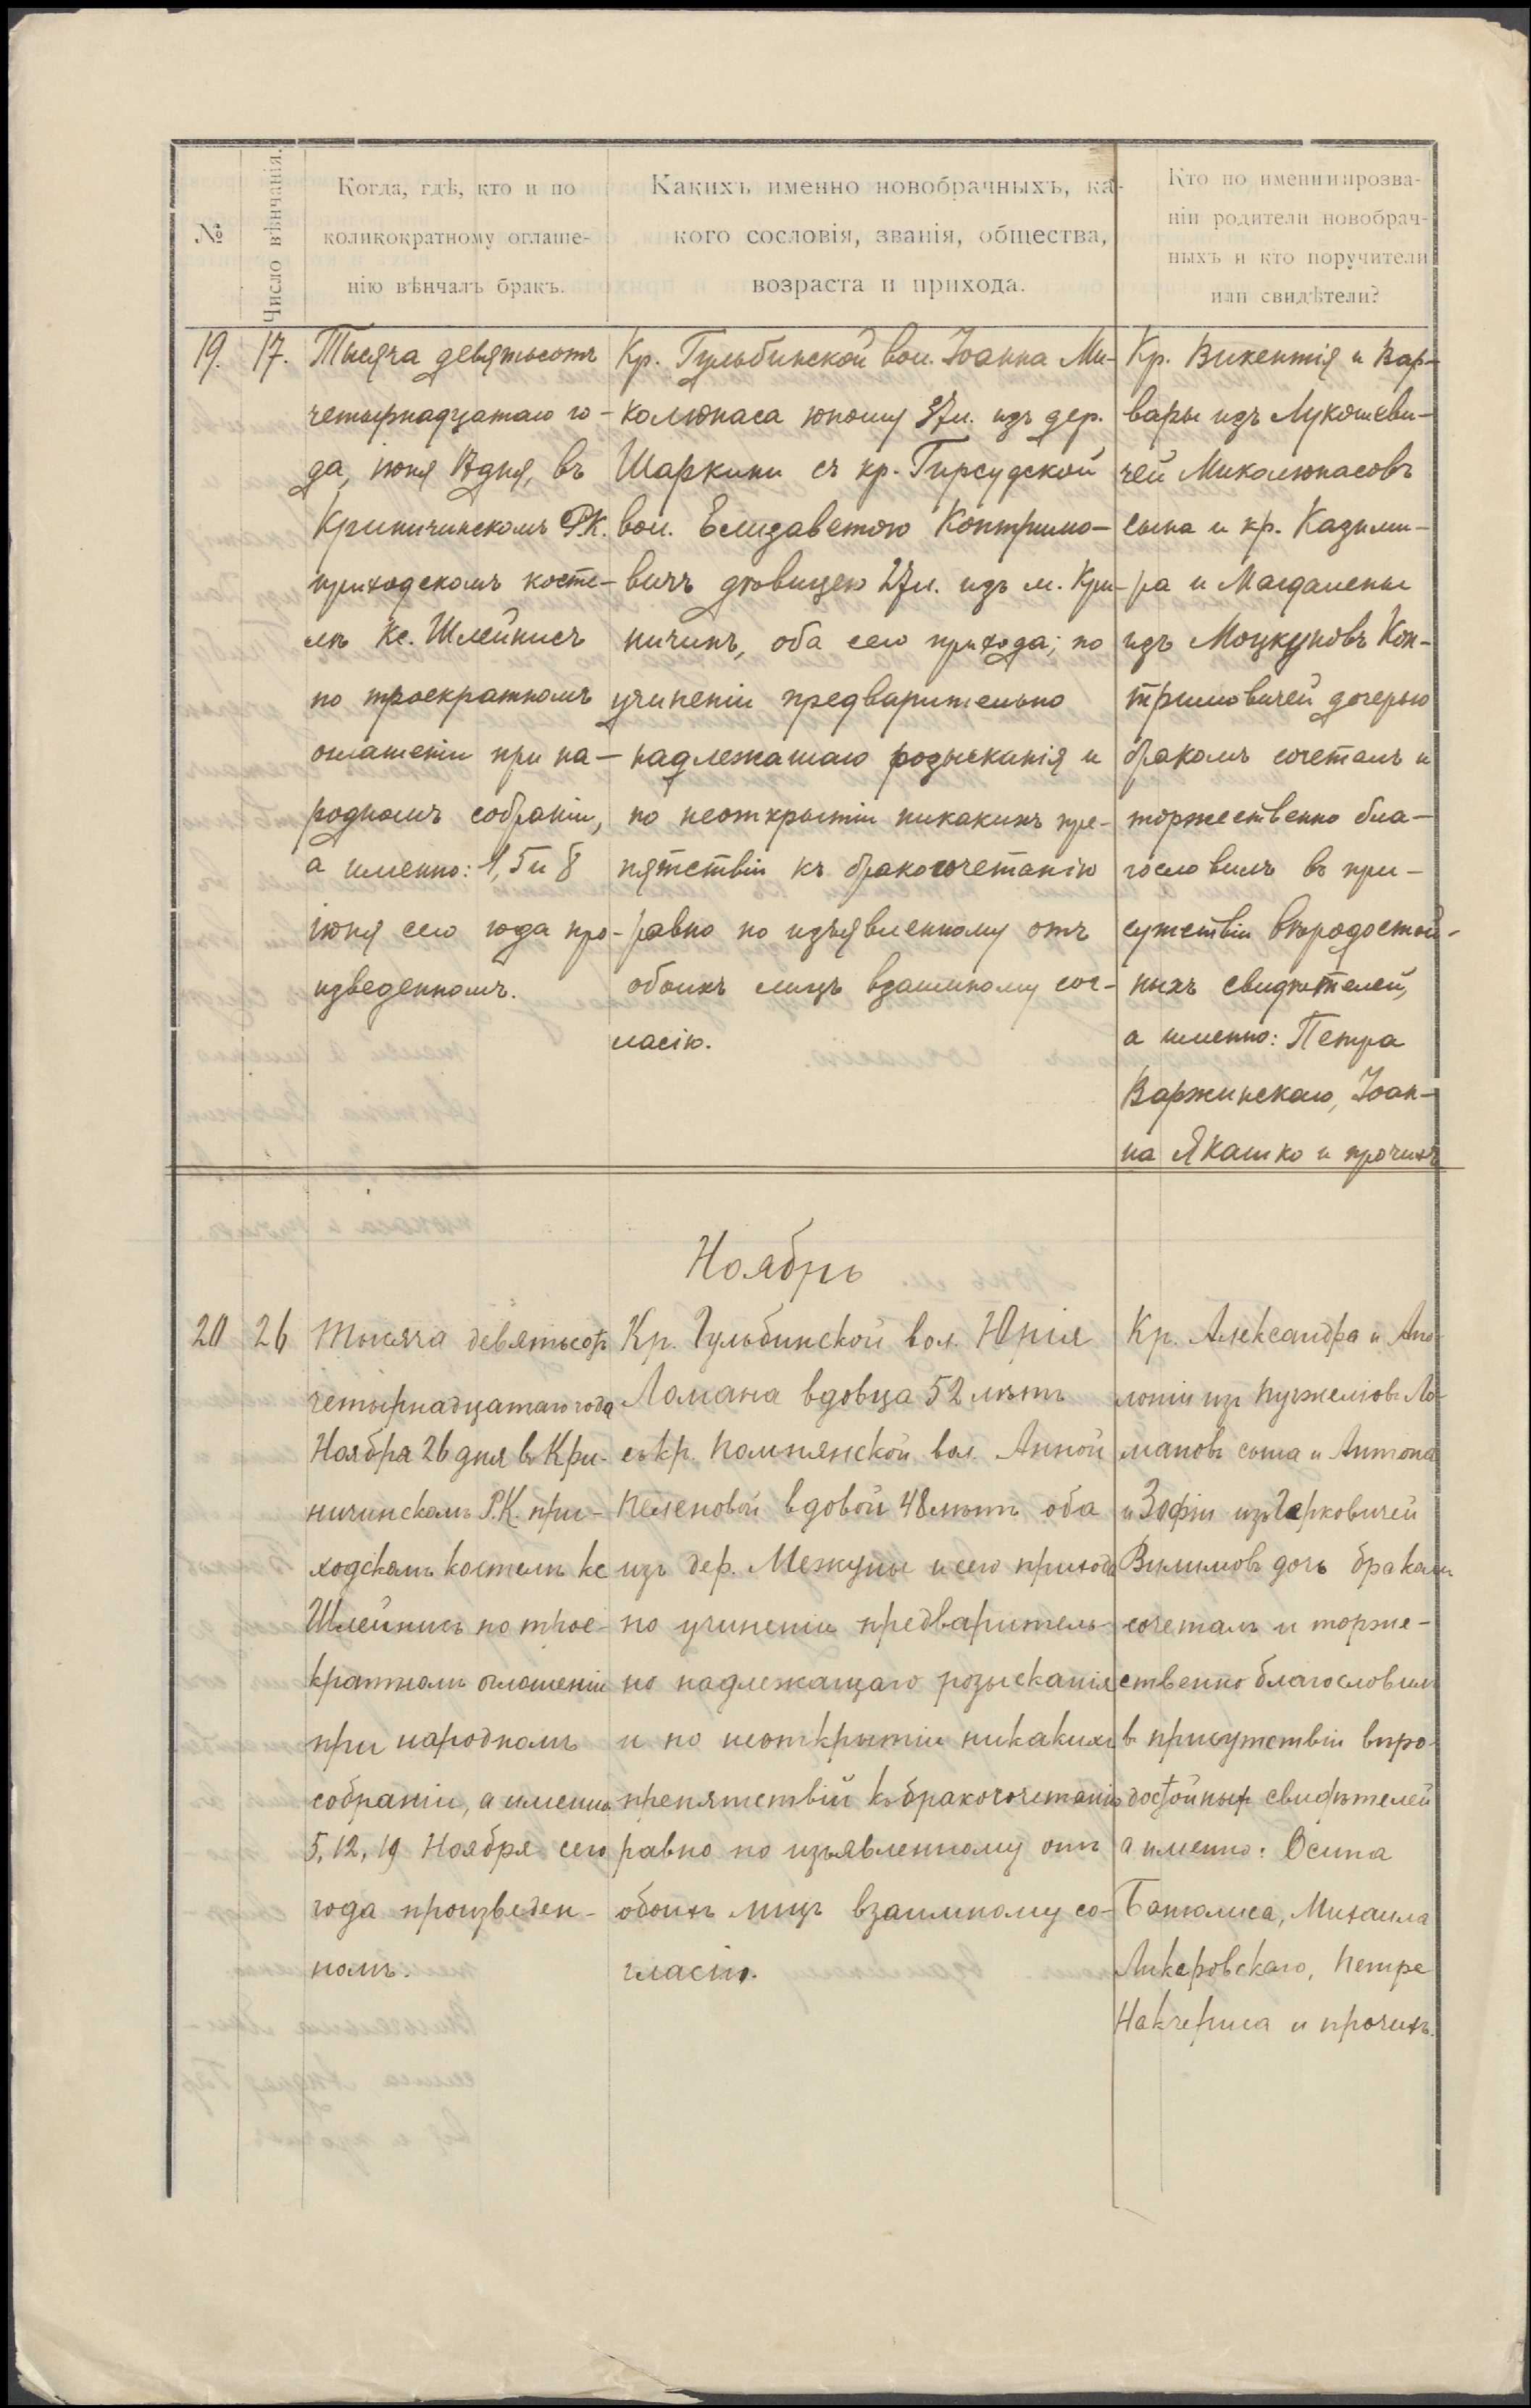 №
Число вѣнчанія.
Когда, гдѣ, кто и по
коликократному оглаше-
нію вѣнчалъ бракъ.
Какихъ именно новобрачныхъ, ка-
кого сословія, званія, общества,
возраста и прихода.
Кто по имени и прозва-
нію родители новобрач-
ныхъ и кто поручители
или свидѣтели?
19. 17.
Тысяча девятьсотъ
четырнадцатаго го-
да, іюня 17 дня, въ
Криничинскомъ Р.К.
приходскомъ косте-
лѣ Кс. Шлейнисъ
по троекратномъ
оглашеніи при на-
родномъ собраніи,
а именно: 1, 5 и 8
іюня сего года про-
изведенномъ.
Кр. Гульбинской вол. Іоанна Ми-
колюнаса юношу 37 л. изъ дер.
Шаркини съ кр. Гирсудской
вол. Елизаветою Контримо-
вичъ дѣвицею 27 л. изъ м. Кри-
ничинъ, оба сего прихода; по
учиненіи предварительно
надлежашаго розысканія и
по неоткрытіи никакихъ пре-
пятствій къ бракосочетанію
равно по изъявленному отъ
обоихъ лицъ взаимному сог-
ласію.
Кр. Викентія и Вар-
вары изъ Лукошеви-
чей Миколюнасовъ
сына и кр. Казими-
ра и Магдалены
изъ Моцкуновъ Кон-
тримовичей дочерью
бракомъ сочеталъ и
торжественно бла-
гословилъ въ при-
сутствіи вѣродостой-
ныхъ свидѣтелей,
а именно: Петра
Варжинскаго, Іоан-
на Якашко и прочихъ
Ноябрь
20 26
Тысяча девятьсотъ
четырнадцатаго года
Ноября 26 дня въ Кри-
ничинскомъ Р.К. при-
ходскомъ костелѣ кс
Шлейнисъ по трое-
кратномъ оглашеніи
при народномъ
собраніи, а именно
5, 12, 19 Ноября сего
года произведен-
номъ.
Кр. Гульбинской вол. Юрія
Ломана вдовца 52 лѣтъ
съ кр. Помпянской вол. Анной
Пеленовой вдовой 48 лѣтъ оба
изъ дер. Межуны и сего прихода
по учиненіи предваритель-
но надлежащаго розысканія
и по неоткрытіи никакихъ
препятствій къ бракосочетанію
равно по изъявленному отъ
обоихъ лицъ взаимному со-
гласію.
Кр. Александра и Апо-
лоніи изъ Пужелювъ Ло-
мановъ сына и Антона
и Зофіи изъ Чарковичей
Вилимовъ дочь бракомъ
сочеталъ и торже-
ственно благословилъ
въ присутствіи вѣро-
достойныхъ свидѣтелей
а именно: Осипа
Баталиса, Михаила
Ликаровскаго, Петра
Накчериса и прочихъ.